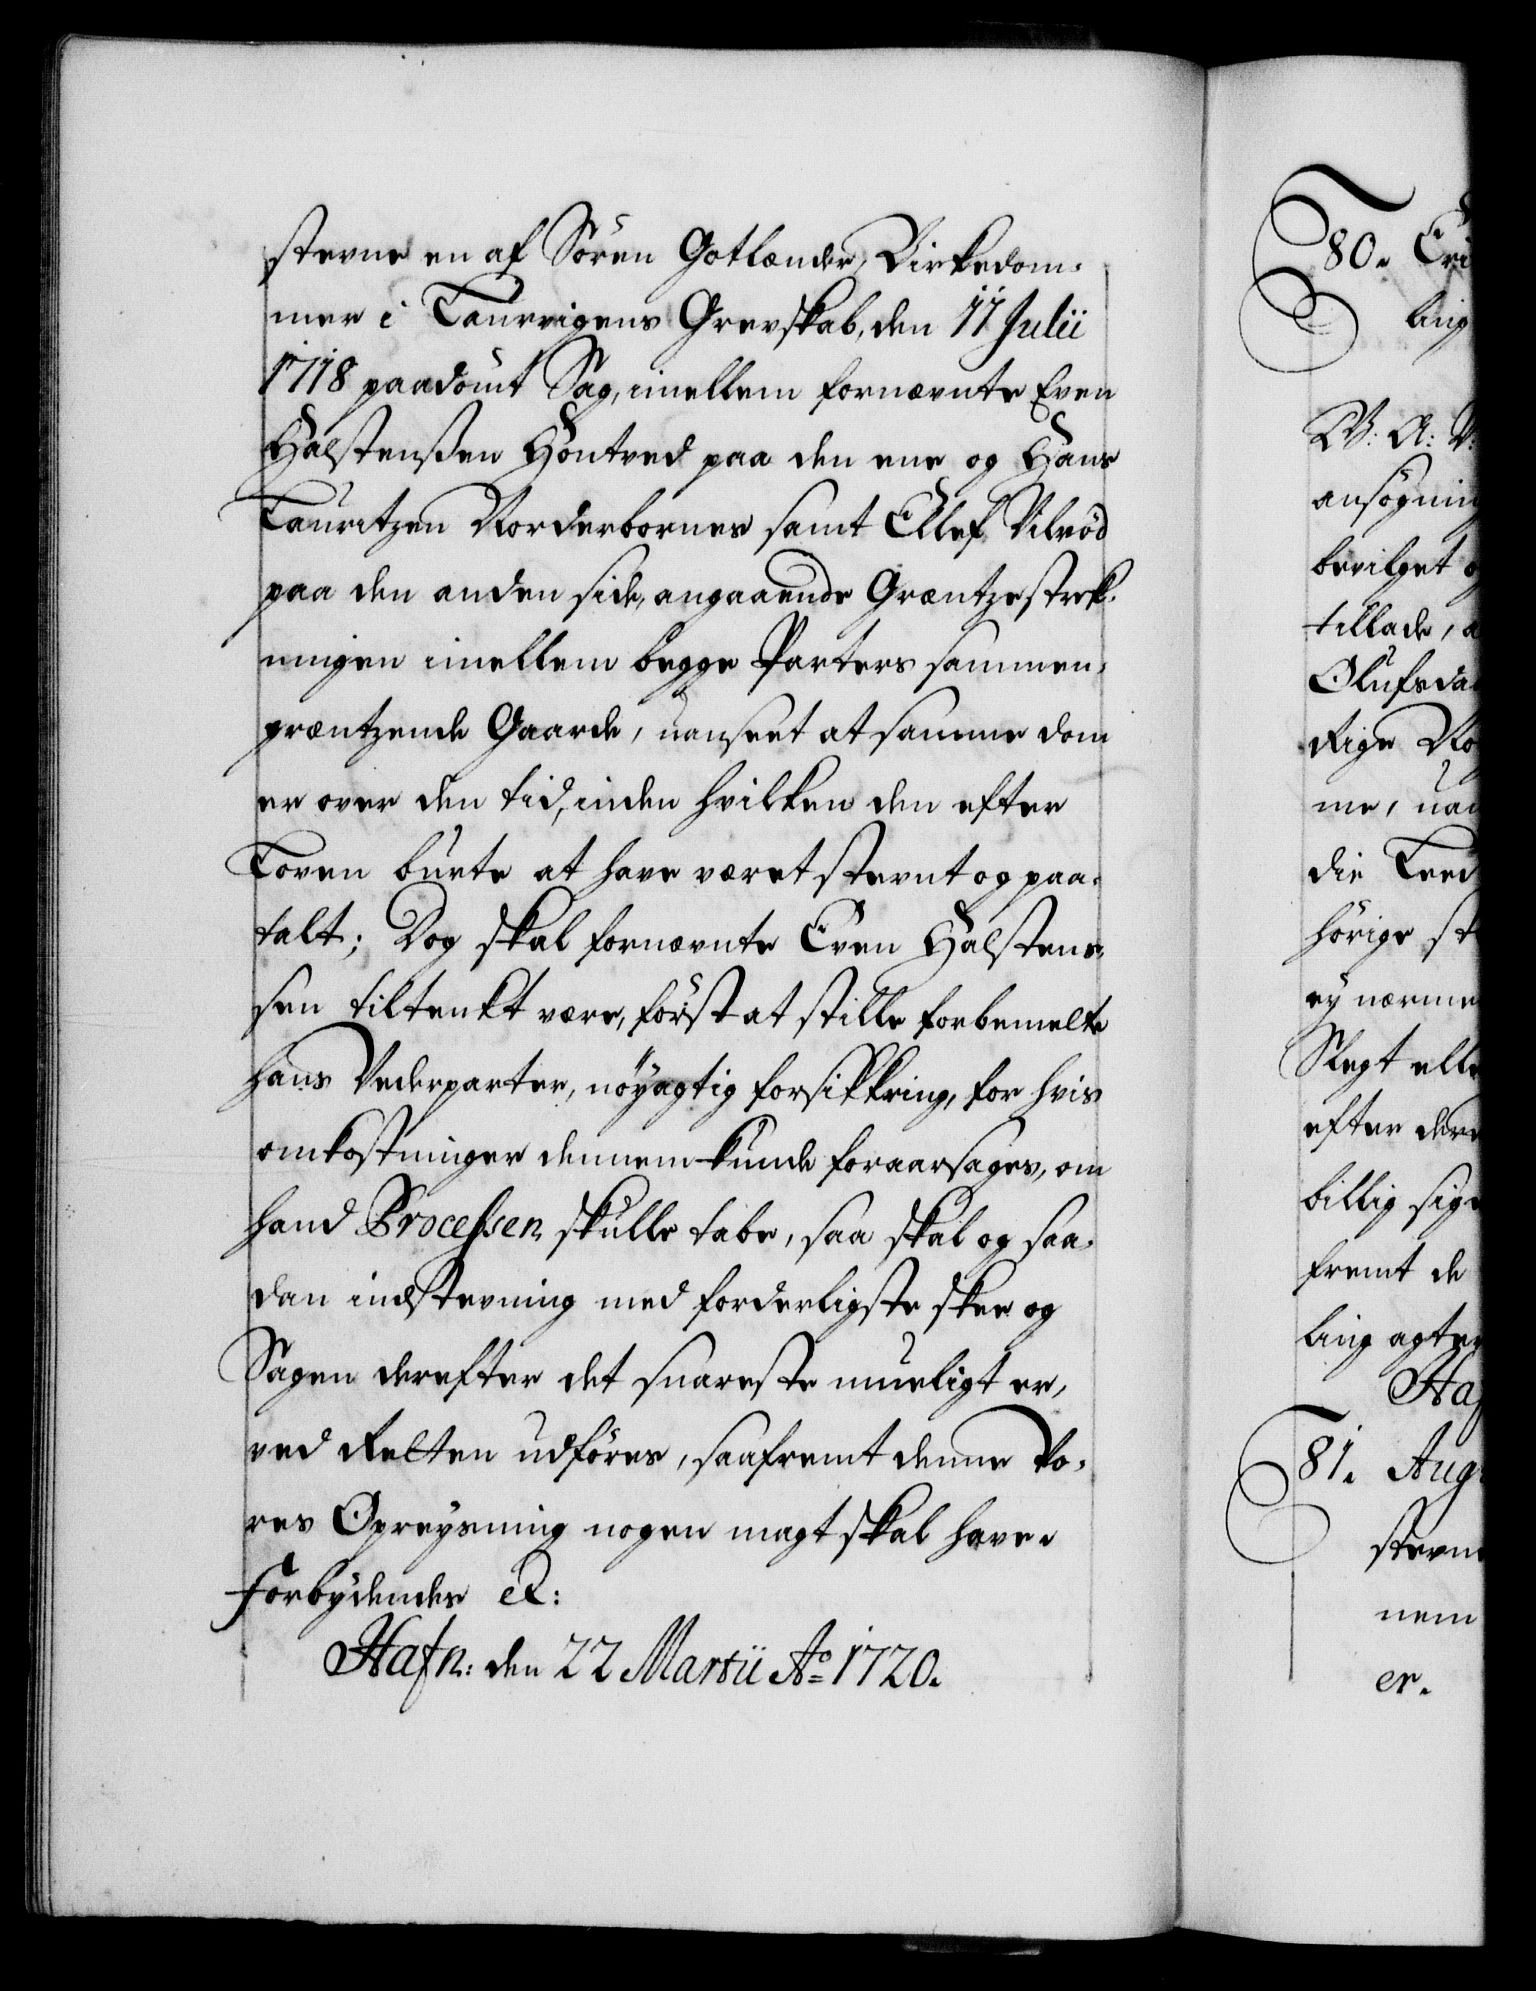 stevne en af Sören Gotlænder, Birkedom-
mer i Laurvigens Grevskab, den 11 Julii
1718 paadömt Sag, imellem fornævnte Even
Halstenßen Höntved paa den ene og Hans
Lauritzen Norderbornes samt Ellef Vilröd
paa den anden side, angaaende Græntzestrek-
ningen imellem begge Parters sammen-
græntzende Gaarde, uanseet at samme dom
er over den tid, inden hvilken den efter
Loven burte at have været stevnt og paa-
talt; Dog skal fornævnte Even Halstens-
sen tiltenkt være, först at stille forbemelte
hans Vederparter, nöyagtig forsikkring, for hvis
omkostninger dennem kunde foraarsages, om
hand Processen skulle tabe, saa skal og saa-
dan indstevning med forderligste skee og
Sagen derefter det snareste mueligt er,
ved Retten udföres, saafremt denne Vo-
res Opreysning nogen magt skal have.
Forbydendes etc:
Hafn: den 22 Martii Ao 1720.
80. Eri
ling
W: A: V:
ansögning
bevilget o
tillade, a
Olufsda
Rige No
me, uan
die Leed
hörige st
ey nærme
Slegt elle
efter dere
billig sig
fremt de
ling agter
Haf
81. Aug
stevne
nem
er.